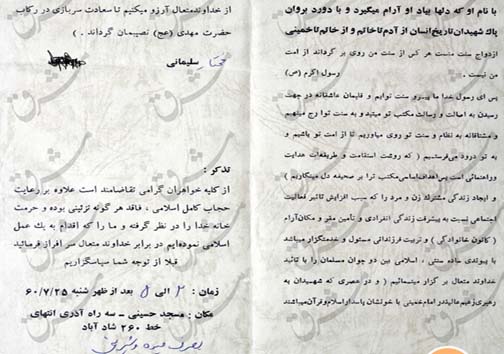 با نام او که دلها بیاد او آرام میگیرد و با درورد بروان
پاك شهیدان تاریخ انسان از آدم تا خاتم و از خاتم تا خمینی
ازدواج سنت منست هر کس از سنت من روی بر گرداند از امت
من نیست . رسول اکرم (ص)
ای رسول خدا ما پیرو سنت توایم و پیمان عاشقانه در جهت
رسیدن به اصالت و رسالت مکتب تو میبندیم و به سنت تو ارج مینهیم
و مشتاقانه به نظام و سنت تو روی میاوریم تا از امت تو باشیم و
به تو درود میفرستیم ( که روشت استقامت و طریقه‌ات هدایت
و راهنمائی است پس اهداف اساسی مکتب ترا بر صحیفه دل میکاریم )
و ایجاد زندگی مشترك زن و مرد را که سبب افزایش تاثیر فعالیت
اجتماعی نسبت به پیشرفت زندگی انفرادی و تامین مقر و مکان آرام
(کانون خانوادگی ) و تربیت فرزندانی مسئول و خدمتگزار میباشد
با پیوندی ساده سنتی ، اسلامی بین دو جوان مسلمان را با تائید
خداوند متعال بر گزار مینمائیم ( و در عصری که شهیدان به
رهبری زعیم عالیقدر امام خمینی با خونشان پاسدار اسلام و قرآن میباشند
از خداوند متعال آرزو میکنیم تا سعادت سربازی در رکاب
حضرت مهدی (عج) نصیبمان گرداند . )
سلیمانی
تذکر :
از کلیه خواهران گرامی تقاضامند است علاوه بر رعایت
حجاب کامل اسلامی ، فاقد هر گونه تزئینی بوده و حرمت
خانه خدا را در نظر گرفته و ما را که اقدام به یك عمل
اسلامی نموده‌ایم در برابر خداوند متعال سر افراز فرمائید
قبلا از توجه شما سپاسگزاریم
زمان : ۲ الی ۵ بعد از ظهر شنبه ۶۰/۷/۲۵
مکان : مسجد حسینی - سه راه آذری انتهای
خط ۲۶۰ شاد آباد
صرف میوه و شیرینی
مشرق